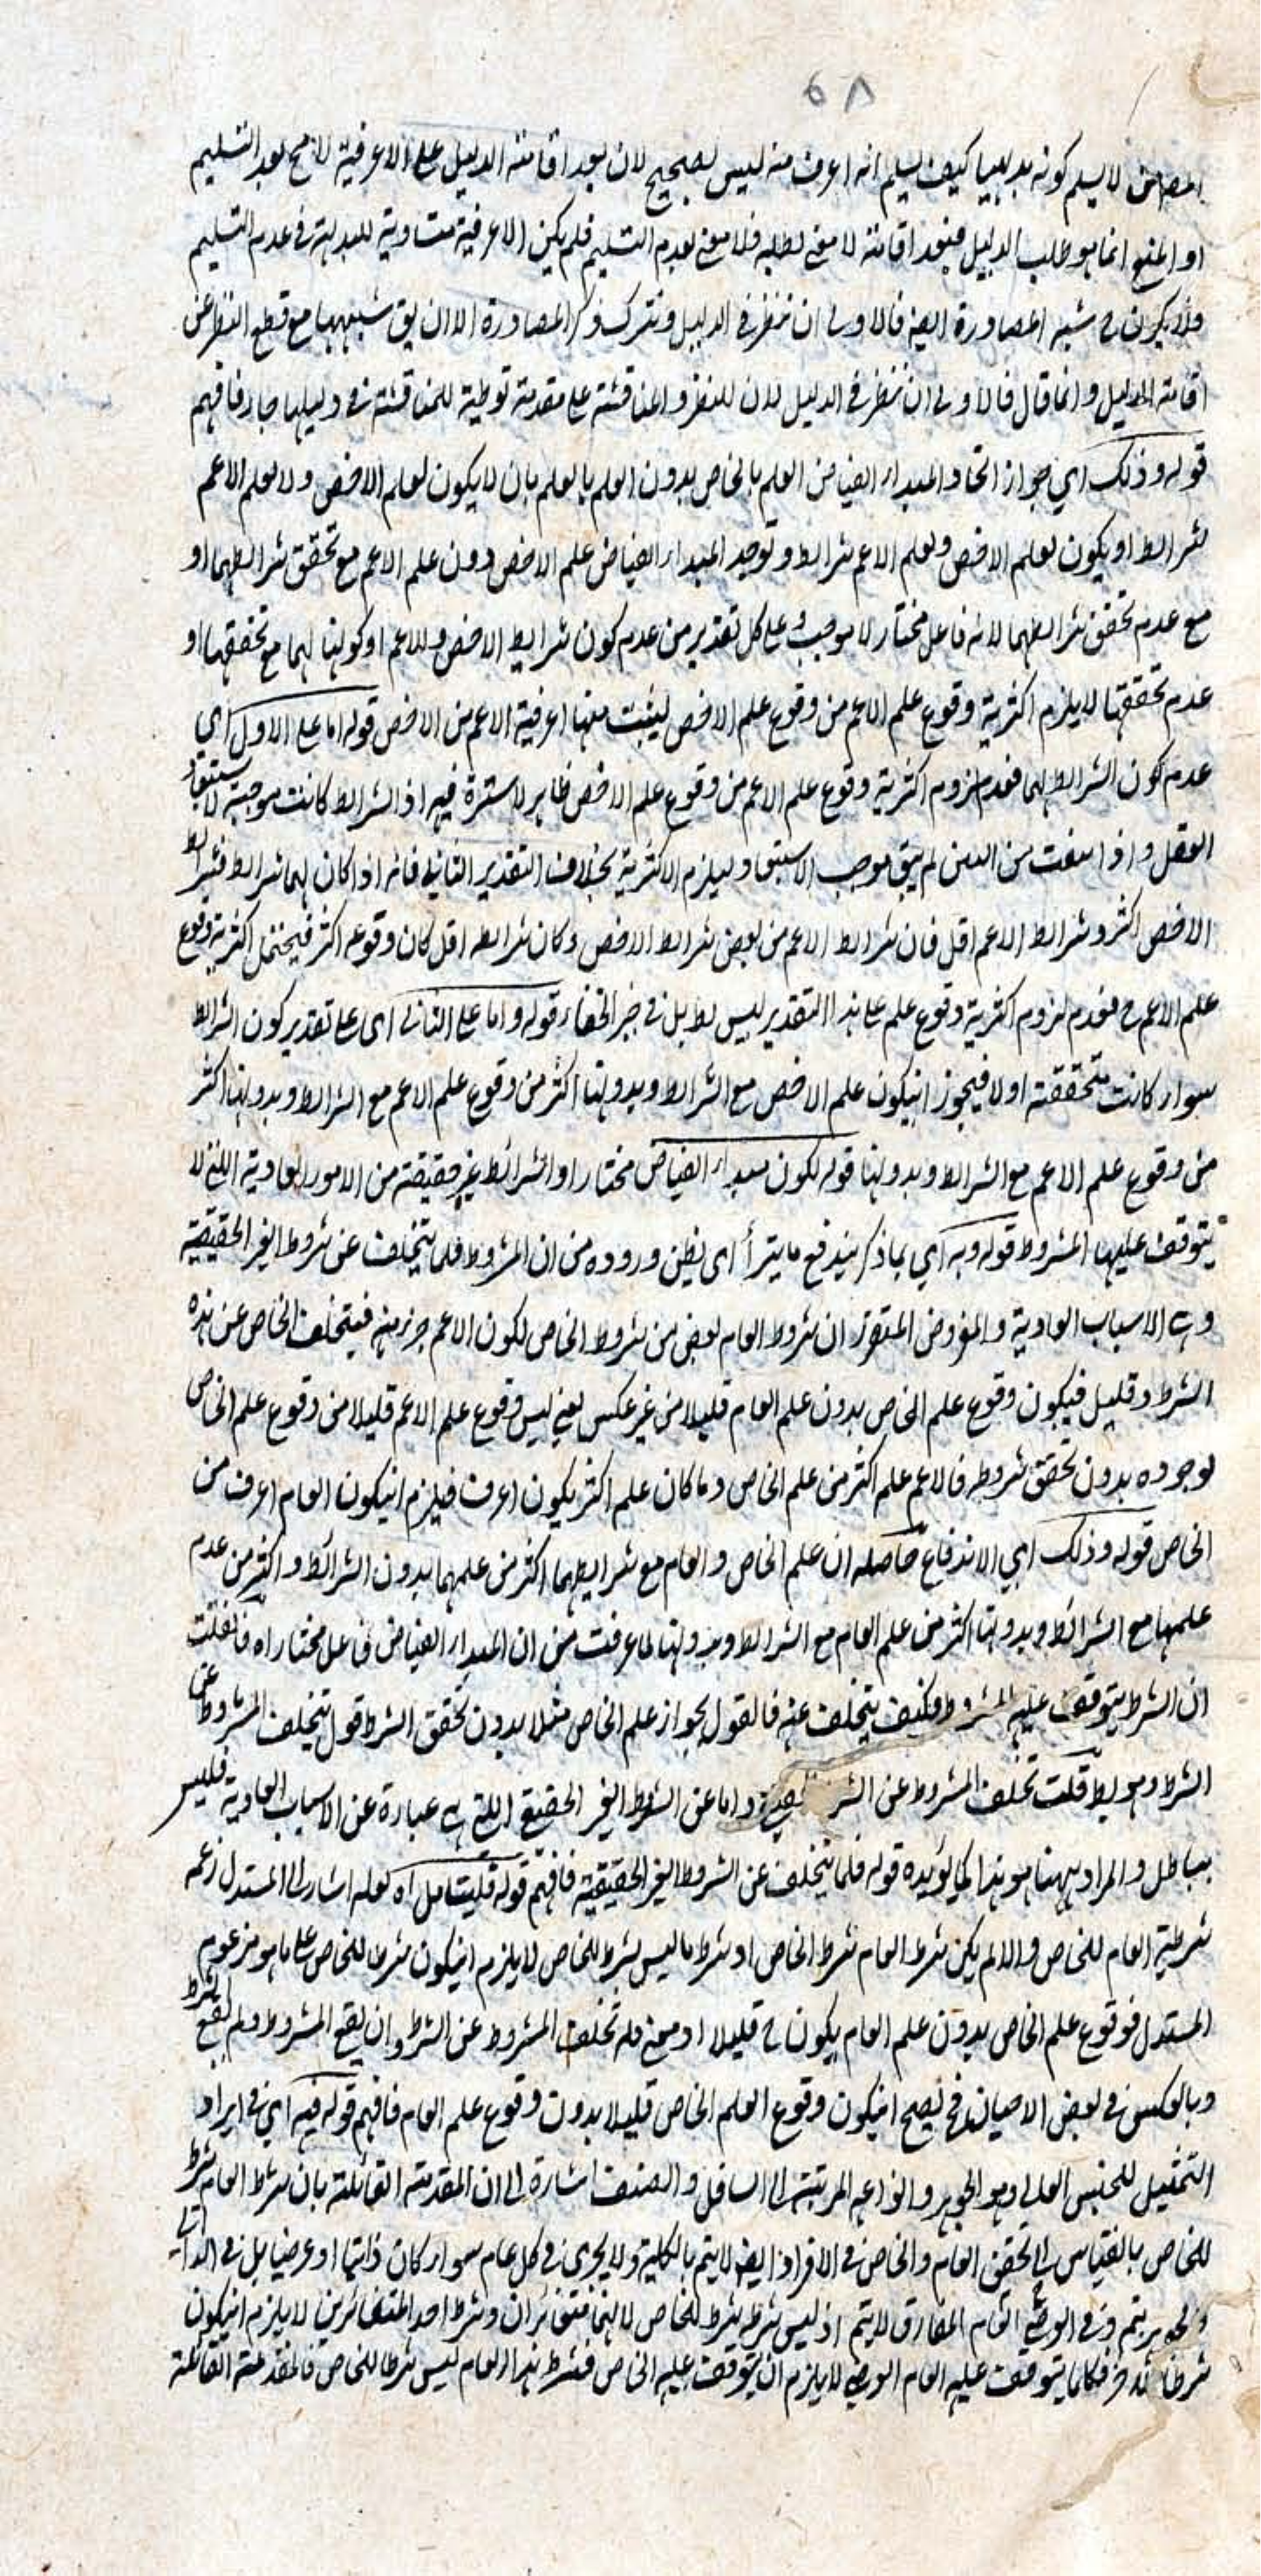 ٦٨
لا يسلم كونه بديهيا كيف يسلم انه اعرف منه ليس بصحيح لان بعد اقامته الدليل على الاعرفية لا منع بعد التسليم
او المنع انما هو طلب الدليل فبعد اقامته لا معنى لطلبه فلا معنى لعدم التسليم فلم يكن الاعرفية متساوية للبديهة في عدم التسليم
فلا يكون في شبه المصادرة ايضا فالاولى ان ننظر في الدليل ونترك ذكر المصادرة الا ان يق شبهها مع قطع النظر عن
اقامته الدليل وانما قال فالاولى ان ننظر في الدليل لان للنظر والمناقشة على مقدمة توطية للمناقشة في دليلها جار فافهم
قوله وذلك اي جواز اتحاد المبدا الفياض العلم بالخاص بدون العلم بالعلم بان لا يكون لعلم الاخص ولا لعلم الاعم
شرايط او يكون لعلم الاخص ولعلم الاعم شرايط وتوجد المبدا الفياض علم الاخص دون علم الاعم مع تحقق شرايطهما او
مع عدم تحقق شرايطهما لانه فاعل مختار لا موجب وعلى كل تقدير من عدم كون شرايط الاخص وللاعم او كونها لهما مع تحققها او
عدم تحققها لا يلزم اكثرية وقوع علم الاعم من وقوع علم الاخص ليثبت منها اعرفية الاعم من الاخص قوله اما على الاول اي
عدم كون الشرايط لهما فعدم لزوم اكثرية وقوع علم الاعم من وقوع علم الاخص ظاهر لا سترة فيه اذ الشرايط كانت موجبة لاستبعاد
العقل واذا انتفت من البين لم يبق موجب الاستبعاد وليلزم الاكثرية بخلاف التقدير الثاني فانه اذا كان لهما شرايط فشرايط
الاخص اكثر وشرايط الاعم اقل فان شرايط الاعم من بعض شرايط الاخص وكان شرايطه اقل كان وقوعه اكثر فيحتمل اكثرية وقوع
علم الاعم ح فعدم لزوم اكثرية وقوع علم على هذا التقدير ليس بط بل في خبر الخفاء قوله واما على الثاني اى على تقدير كون الشرايط
سواء كانت متحققة او لا فيجوز انيكون علم الاخص مع الشرايط وبدونها اكثر من وقوع علم الاعم مع الشرايط وبدونها اكثر
من وقوع علم الاعم مع الشرايط وبدونها قوله لكون مبدا الفياض مختارا او الشرائط غير حقيقة من الامور العادية اللتي لا
يتوقف عليها المشروط قوله وبه اي بما ذكر يندفع ما يترأ اى يظن وروده من ان المشروط قلما يتخلف عن شروط الغير الحقيقية
وهي الاسباب العادية والمفروض المتقرر ان شروط العام بعض من شروط الخاص لكون الاعم جزء منه فيتخلف الخاص عن هذه
الشرط وقليل فيكون وقوع علم الخاص بدون علم العام قليلا من غير عكس يعنى ليس وقوع علم الاعم قليلا من وقوع علم الخاص
لوجوده بدون تحقق شروطه فالاعم علم اكثر من علم الخاص وما كان علم اكثر يكون اعرف فيلزم انيكون العام اعرف من
الخاص قوله وذلك اي الاندفاع حاصله ان علم الخاص والعام مع شرايطهما اكثر من علمهما بدون الشرائط واكثر من عدم
علمهما مع الشرائط وبدونها اكثر من علم العام مع الشرايط وبدونها لما عرفت من ان المبدا الفياض فاعل مختار اه فان قلت
ان الشرط يتوقف عليه المشروط فكيف يتخلف عنه فالقول بجواز علم الخاص مثلا بدون تحقق الشرط قول بتخلف المشروط عن
الشرط وهو بط قلت تخلف المشروط عن الشر واما عن الشروط الغير الحقيقى اللتي هي عبارة عن الاسباب العادية فليس
بباطل والمراد ههنا هو هذا كما يؤيده قوله قلما يتخلف عن الشروط الغير الحقيقية فافهم قوله فليتأمل اه لعله اشارة الى المستدل زعم
شرطية العام للخاص والا لم يكن شرط العام شرط الخاص اذ شرط ما ليس بشرط للخاص لا يلزم انيكون شرطا للخاص على ما هو مزعوم
المستدل فوقوع علم الخاص بدون علم العام يكون ح قليلا اذ معنى قلة تخلف المشروط عن الشرط ان يقع المشروط ولم يقع الشرط
وبالعكس في بعض الاحيان فح يصح انيكون وقوع العلم الخاص قليلا بدون وقوع علم العام فافهم قوله فيه اى في ايراد
التمثيل للجنس العالى وهو الجوهر وانواعه المرتبة الى السافل والصنف اشارة الى ان المقدمة القائلة بان شرط العام شرط
للخاص بالقياس الى تحقق العام والخاص في الافراد ايضا لا يتم بالكلية ولا يجرى في كل عام سواء كان ذاتيا او عرضيا بل في الذاتي
يتم وفى العرضى العام المفارق لا يتم اذ ليس شرطه شرط للخاص لانهما متغائران وشرط احد المتغائرين لا يلزم انيكون
شرطا للاخر فكلما يتوقف عليه العام العرضى لا يلزم ان يتوقف عليه الخاص فشرط هذا العام ليس شرطا للخاص فالمقدمة القائلة